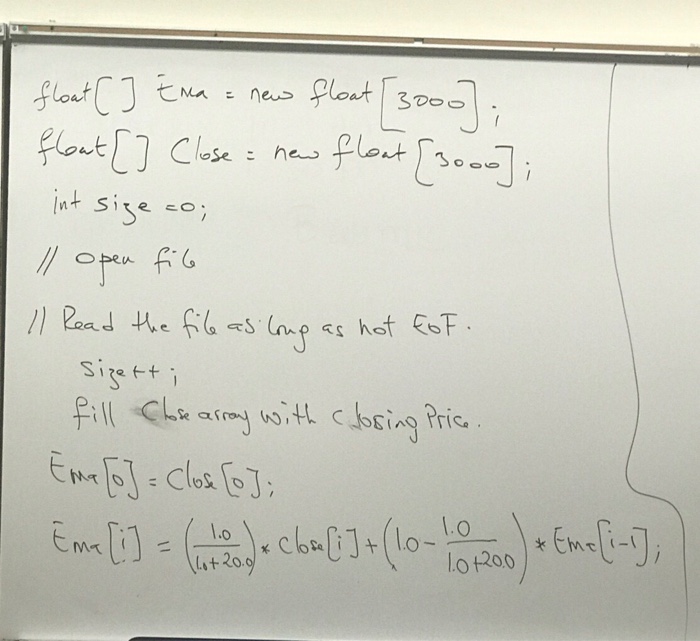 float[] Ema = new float[3000];
float[] Close = new float[3000];
int size =0;
// open file
// Read the file as long as not EOF.
size++;
fill Close array with closing Price.
Ema[0] = Close[0];
Ema[i] = (1.0/1.0+20.0) * Close[i] + (1.0 - 1.0/1.0+20.0) * Ema[i-1];